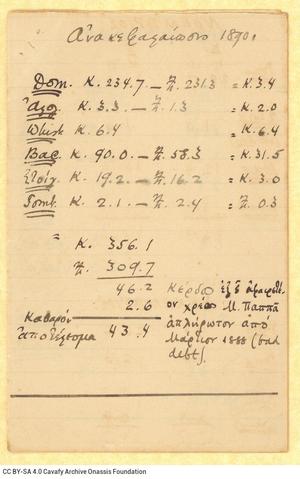 Ἀνακεφαλαίωσις 1890.
Dom. Κ. 234.7 — Ζ. 231.3 = Κ. 3.4
Κ. 3.3 — Ζ. 1.3 = Κ. 2.0
Whisk. Κ. 6.4 = Κ. 6.4
Bac. Κ. 90.0 — Ζ. 58.3 = Κ. 31.5
Κ. 19.2 — Ζ. 16.2 = Κ. 3.0
Κ. 2.1 — Ζ. 2.4 = Ζ. 0.3
= Κ. 356.1
Ζ. 309.7
46.2 κέρδος ἐξ οὗ ἀφαιρετέ-
2.6 ον χρέος Μ. Παππᾶ
καθαρὸν ἀπλήρωτον ἀπὸ
ἀποτέλεσμα 43.4 Μάρτιον 1888 (bad
debt).
CC BY-SA 4.0 Cavafy Archive Onassis Foundation